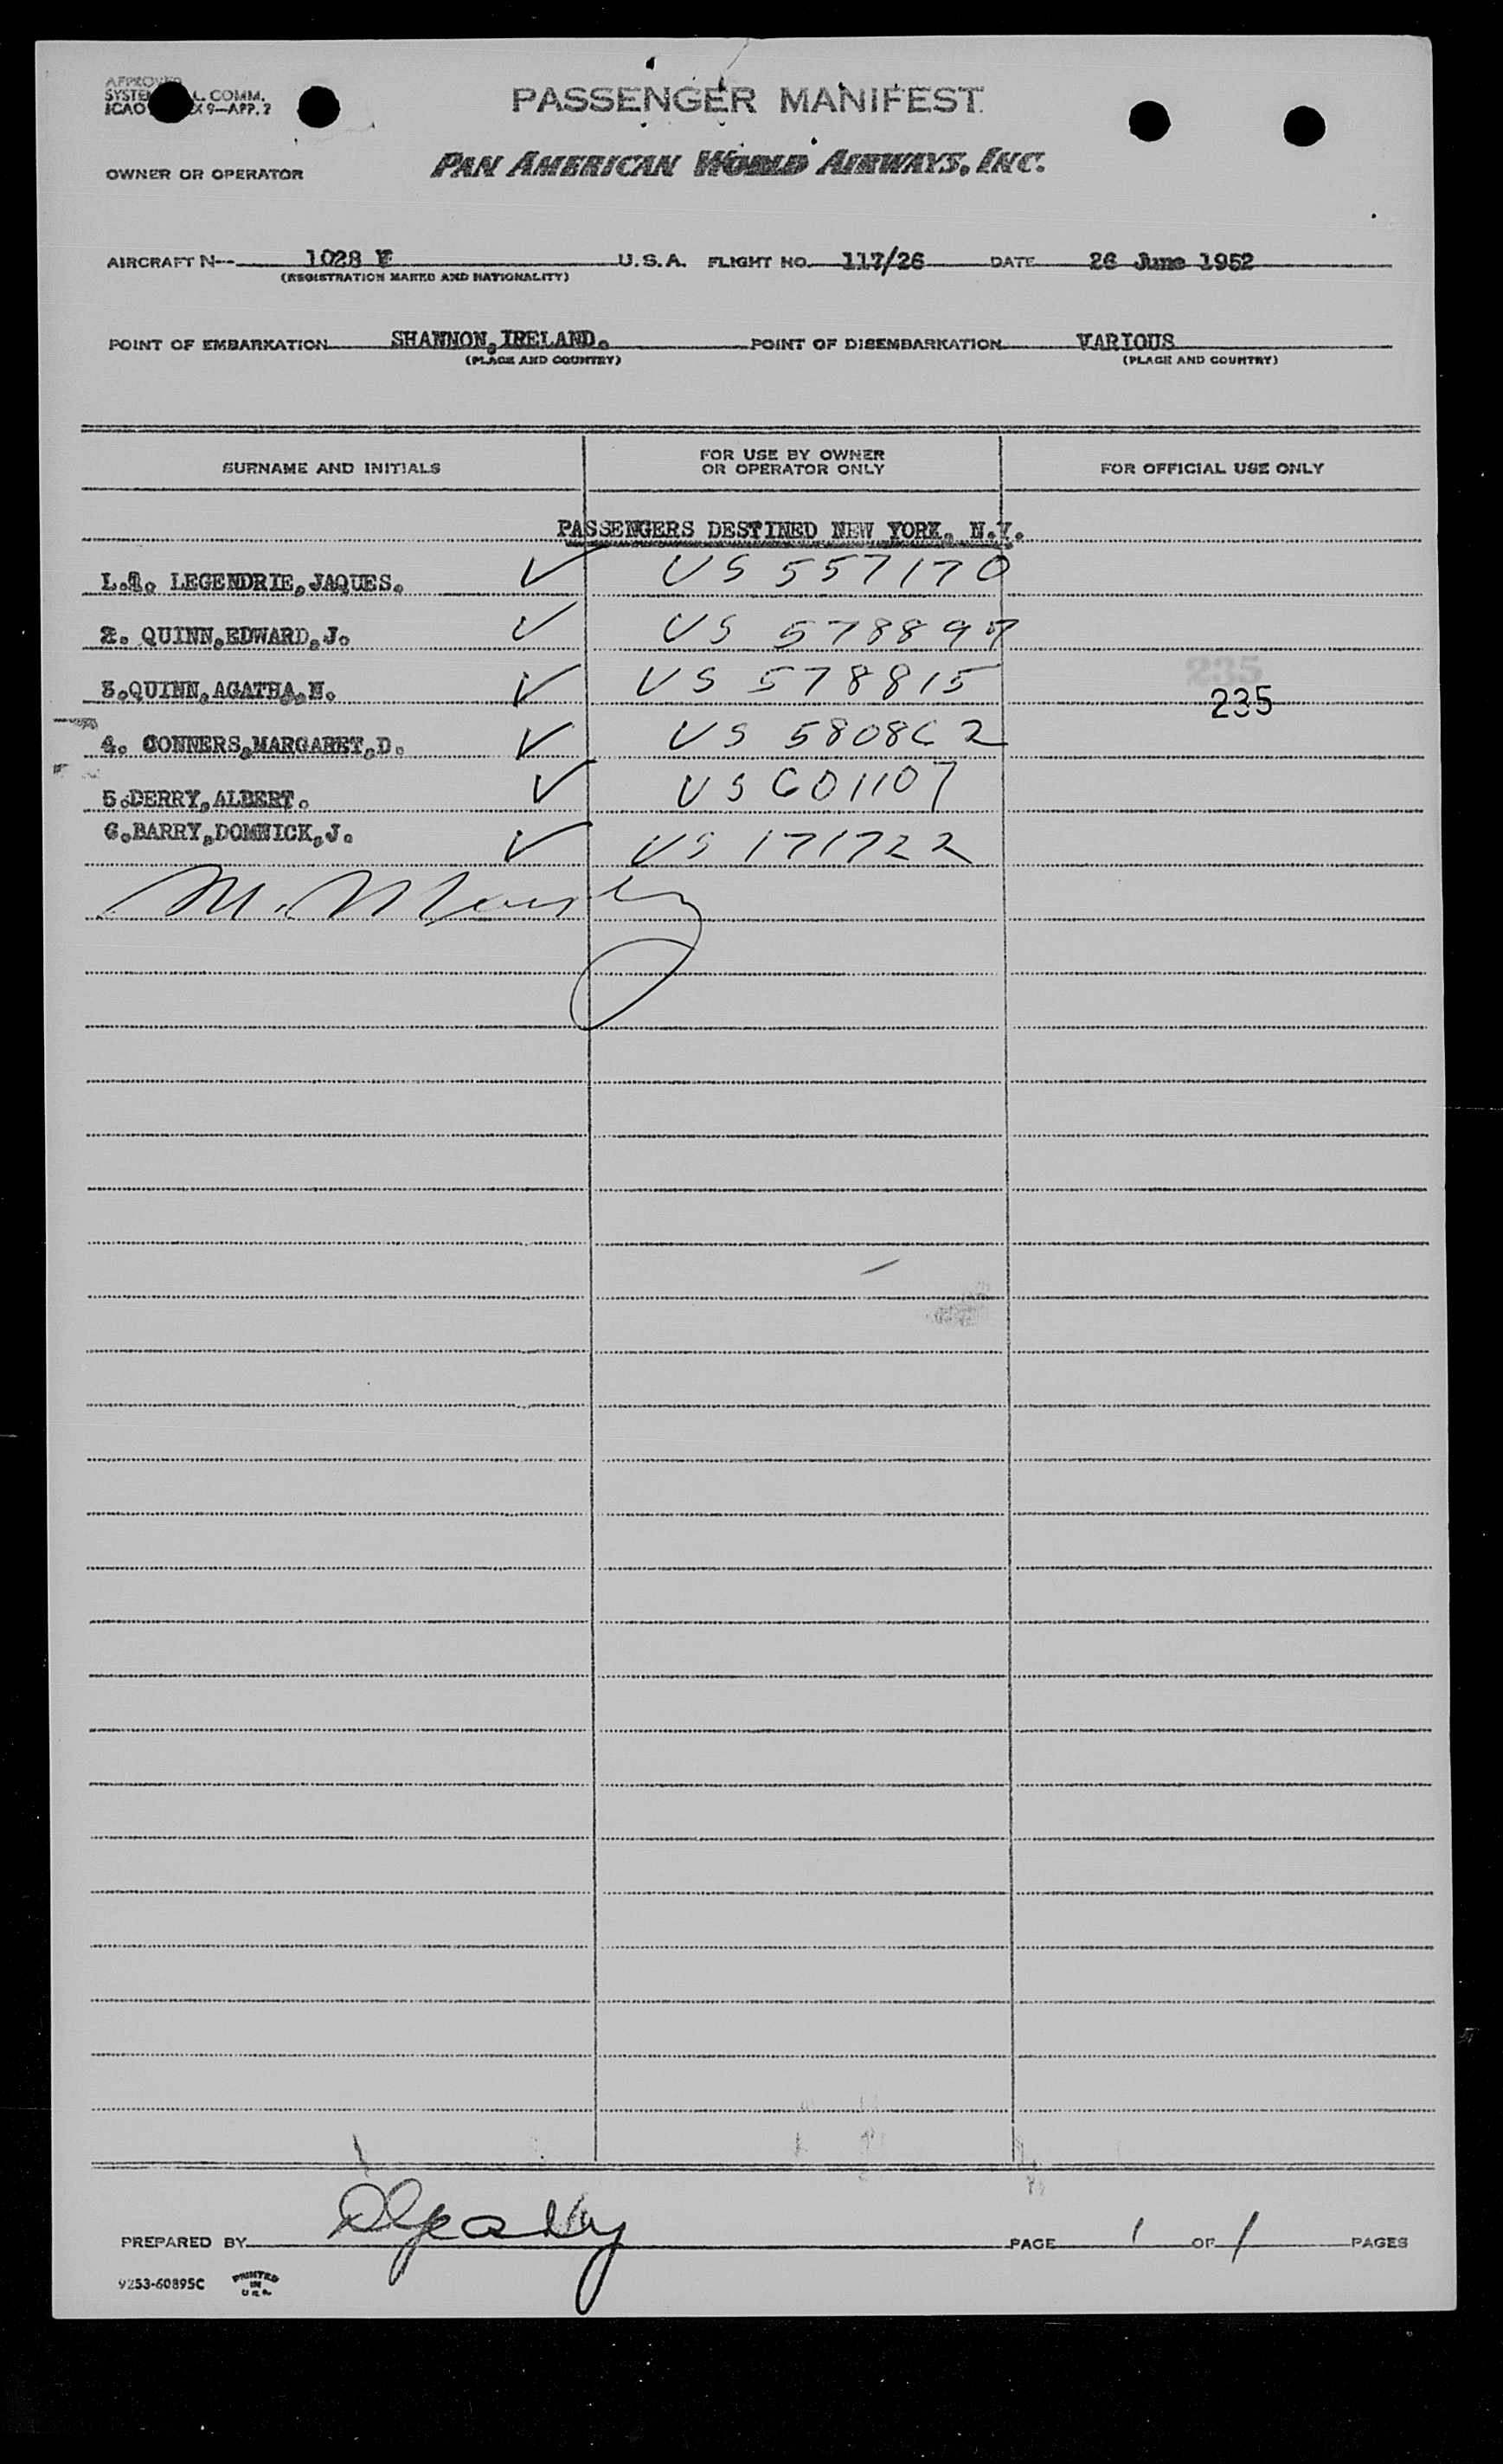 APPROVED
SYSTE L. COMM.
ICAO X 9—APP. 2
PASSENGER MANIFEST
OWNER OR OPERATOR PAN AMERICAN WORLD AIRWAYS, INC.
AIRCRAFT N-- 1028 V U.S.A. FLIGHT NO. 117/26 DATE 26 June 1952
(REGISTRATION MARKS AND NATIONALITY)
POINT OF EMBARKATION SHANNON, IRELAND. POINT OF DISEMBARKATION VARIOUS
(PLACE AND COUNTRY) (PLACE AND COUNTRY)
SURNAME AND INITIALS FOR USE BY OWNER OR OPERATOR ONLY FOR OFFICIAL USE ONLY
PASSENGERS DESTINED NEW YORK. N.Y.
1. LEGENDRIE,JAQUES. ✓ US 557170
2. QUINN,EDWARD,J. ✓ US 578897
3.QUINN,AGATHA,N. ✓ US 578815
235
235
4. CONNERS,MARGARET,D. ✓ US 580862
5.DERRY,ALBERT. ✓ US 601107
6.BARRY,DOMNICK,J. ✓ US 171722
PREPARED BY PAGE 1 OF 1 PAGES
9253-60895C PRINTED IN U.S.A.